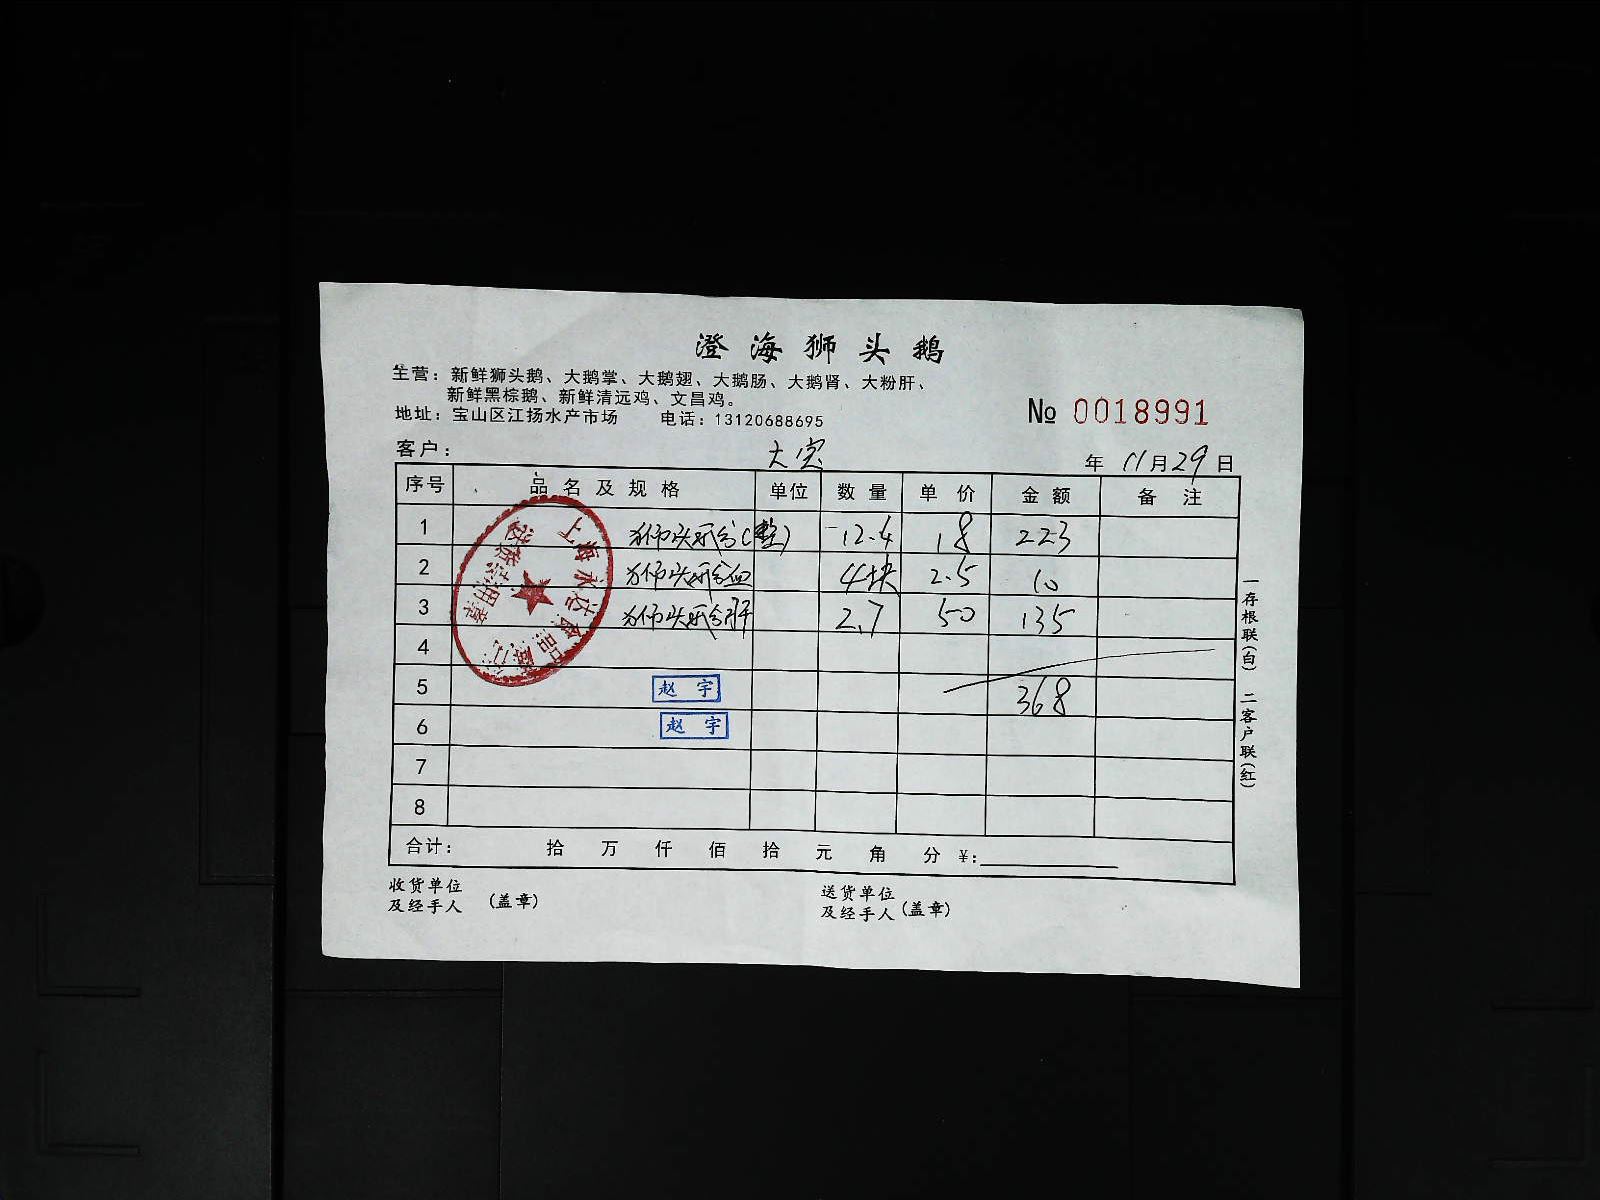 澄海狮头鹅
主营：新鲜狮头鹅、大鹅掌、大鹅翅、大鹅肠、大鹅肾、大粉肝、
新鲜黑棕鹅、新鲜清远鸡、文昌鸡。
地址：宝山区江扬水产市场 电话：13120688695
№ 0018991
客户： 大宝 年 11月29日
序号 品名及规格 单位 数量 单价 金额 备注
1 狮头鹅(整) 12.4 18 223
2 狮头鹅血 4块 2.5 10
3 狮头鹅肝 2.7 50 135
4
5 368
6
7
8
赵宇
赵宇
合计： 拾 万 仟 佰 拾 元 角 分 ¥:
收货单位
及经手人 (盖章)
送货单位
及经手人 (盖章)
一存根联(白) 二客户联(红)